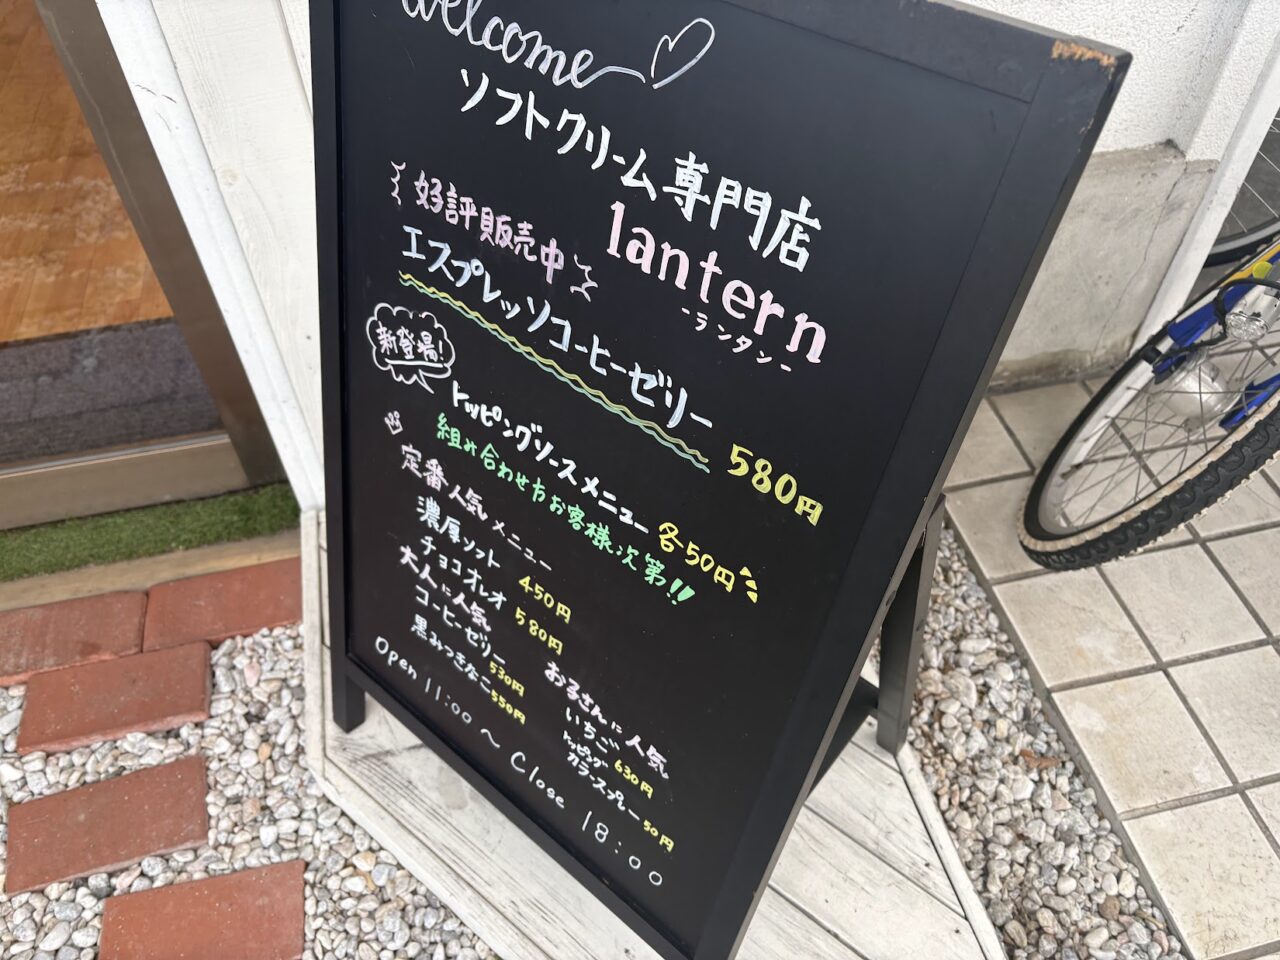 welcome
ソフトクリーム専門店
lantern
-ランタン-
好評販売中
エスプレッソコーヒーゼリー 580円
新登場!
トッピングソースメニュー 各50円
組み合わせ方お客様次第!!
定番人気メニュー
濃厚ソフト 450円
チョコオレオ 580円
大人に人気
コーヒーゼリー 530円
黒みつきなこ 550円
お子さんに人気
いちご 630円
トッピング
カラースプレー 50円
Open 11:00 ~ Close 18:00